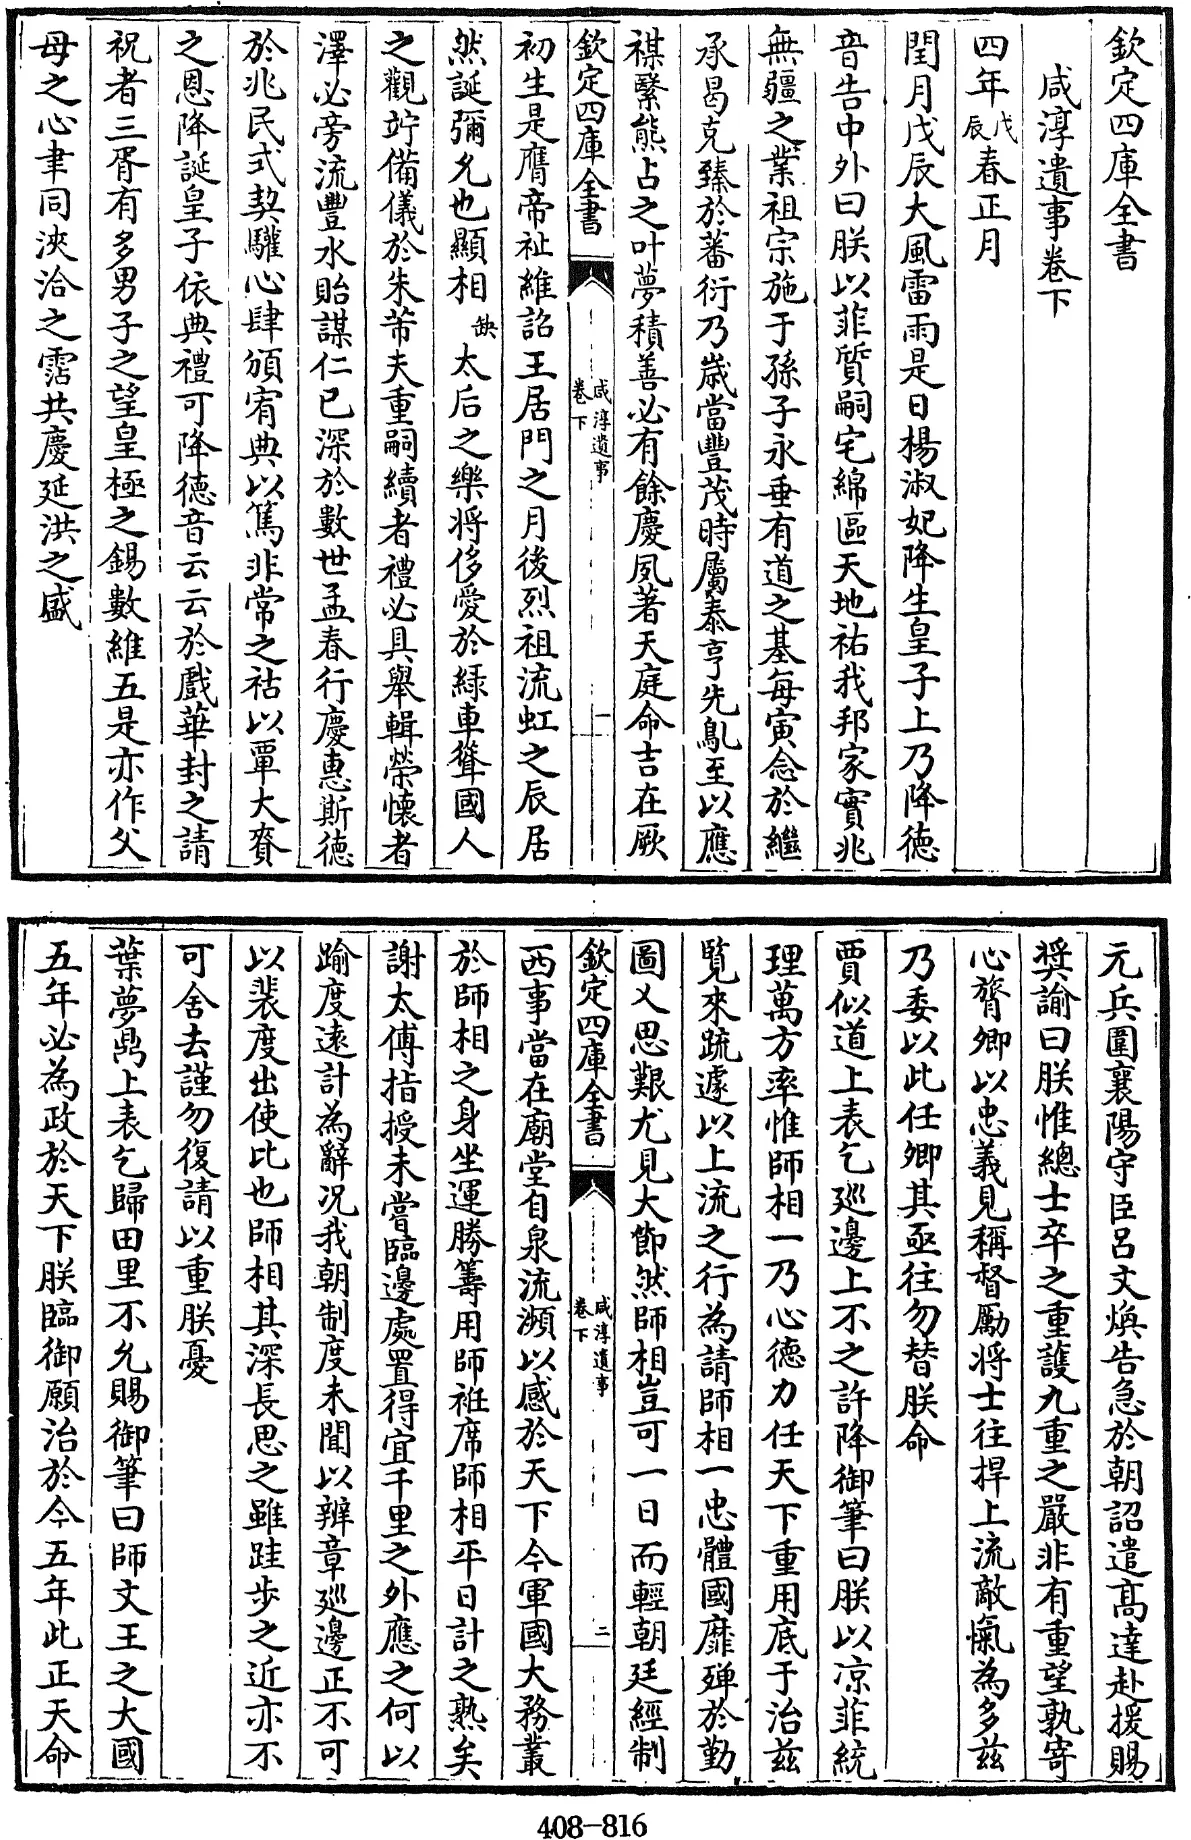 欽定四庫全書
咸淳遺事卷下
四年戊辰春正月
閏月戊辰大風雷雨是日楊淑妃降生皇子上乃降德
音告中外曰朕以菲質嗣宅綿區天地祐我邦家實兆
無疆之業祖宗施于孫子永垂有道之基每寅念於繼
承曷克臻於蕃衍乃歲當豐茂時屬泰亨先鳦至以應
禖繄熊占之叶夢積善必有餘慶夙著天庭命吉在厥
欽定四庫全書
咸淳遺事
卷下
一
初生是膺帝祉維詒王居門之月後烈祖流虹之辰居
然誕彌允也顯相缺太后之樂將侈愛於緑車聳國人
之觀竚備儀於朱芾夫重嗣續者禮必具舉輯榮懷者
澤必旁流豐水貽謀仁已深於數世孟春行慶惠斯徳
於兆民式契驩心肆頒宥典以篤非常之祜以覃大賚
之恩降誕皇子依典禮可降德音云云於戲華封之請
祝者三胥有多男子之望皇極之錫數維五是亦作父
母之心聿同浹洽之霑共慶延洪之盛
元兵圍襄陽守臣呂文煥告急於朝詔遣髙達赴援賜
奬諭曰朕惟總士卒之重護九重之嚴非有重望孰寄
心膂卿以忠義見稱督勵將士往捍上流敵愾為多兹
乃委以此任卿其亟往勿替朕命
賈似道上表乞廵邊上不之許降御筆曰朕以凉菲統
理萬方率惟師相一乃心德力任天下重用底于治兹
覽來疏遽以上流之行為請師相一忠體國靡殫於勤
圖乂思艱尤見大節然師相豈可一日而輕朝廷經制
欽定四庫全書
咸淳遺事
卷下
二
西事當在廟堂自泉流瀕以感於天下今軍國大務叢
於師相之身坐運勝籌用師袵席師相平日計之熟矣
謝太傅指授未嘗臨邊處置得宜千里之外應之何以
踰度遠計為辭况我朝制度未聞以辨章廵邊正不可
以裴度出使比也師相其深長思之雖跬歩之近亦不
可舍去謹勿復請以重朕憂
葉夢鼎上表乞歸田里不允賜御筆曰師文王之大國
五年必為政於天下朕臨御願治於今五年此正天命
408-816